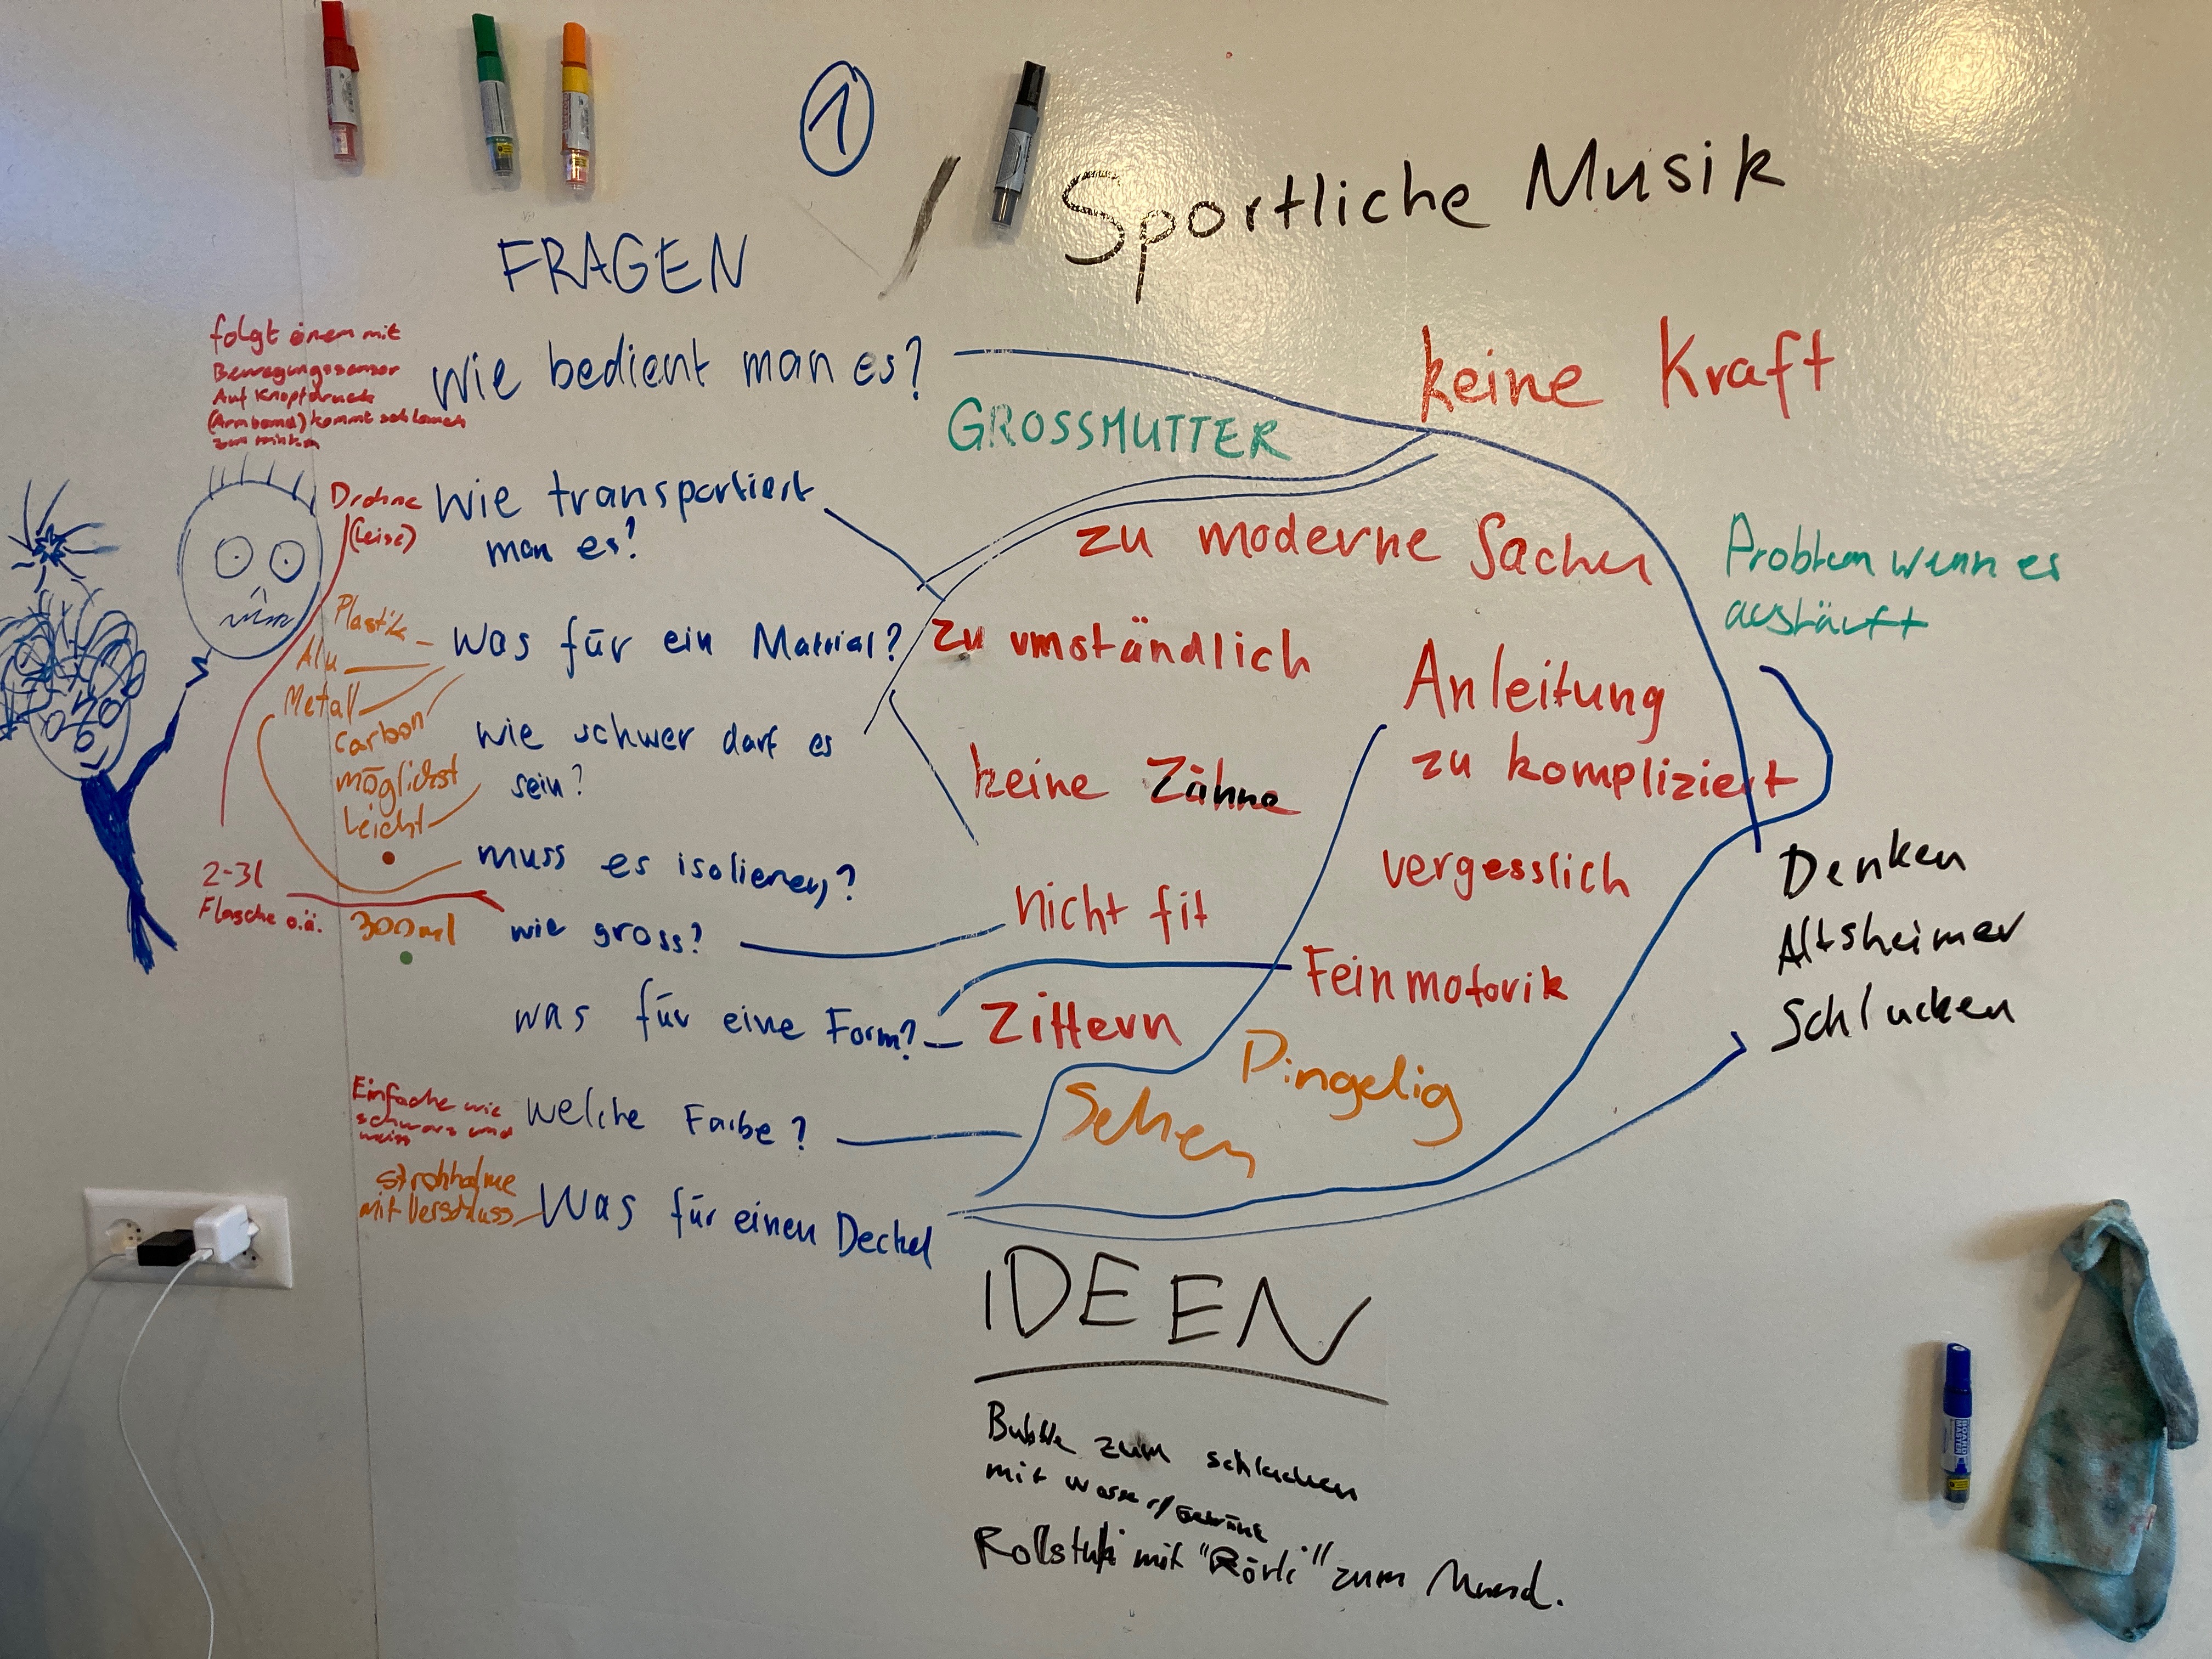 1
Sportliche Musik
FRAGEN
folgt einem mit
Bewegungssensor
Auf Knopfdruck
(Armband) kommt schlauch
wie bedient man es?
keine Kraft
GROSSMUTTER
Drohne
(leise)
wie transportiert
man es?
zu moderne Sachen
Problem wenn es
ausläuft
Plastik
Alu
Metall
Carbon
was für ein Matrial?
zu umständlich
Anleitung
zu kompliziert
möglichst
Leicht
wie schwer darf es
sein?
keine Zähne
muss es isolieren?
vergesslich
Denken
Altsheimer
Schlucken
2-3l
Flasche o.ä.
300ml
wie gross?
nicht fit
was für eine Form?
Zittern
Feinmotorik
Pingelig
Sehen
Einfache wie
schwarz und
weiss
welche Farbe?
strohhalme
mit Verschluss
Was für einen Deckel
IDEEN
Bubble zum schlucken
mit wasser/Getränk
Rollstuhl mit "Rörli" zum Mund.
BOARD
MASTER